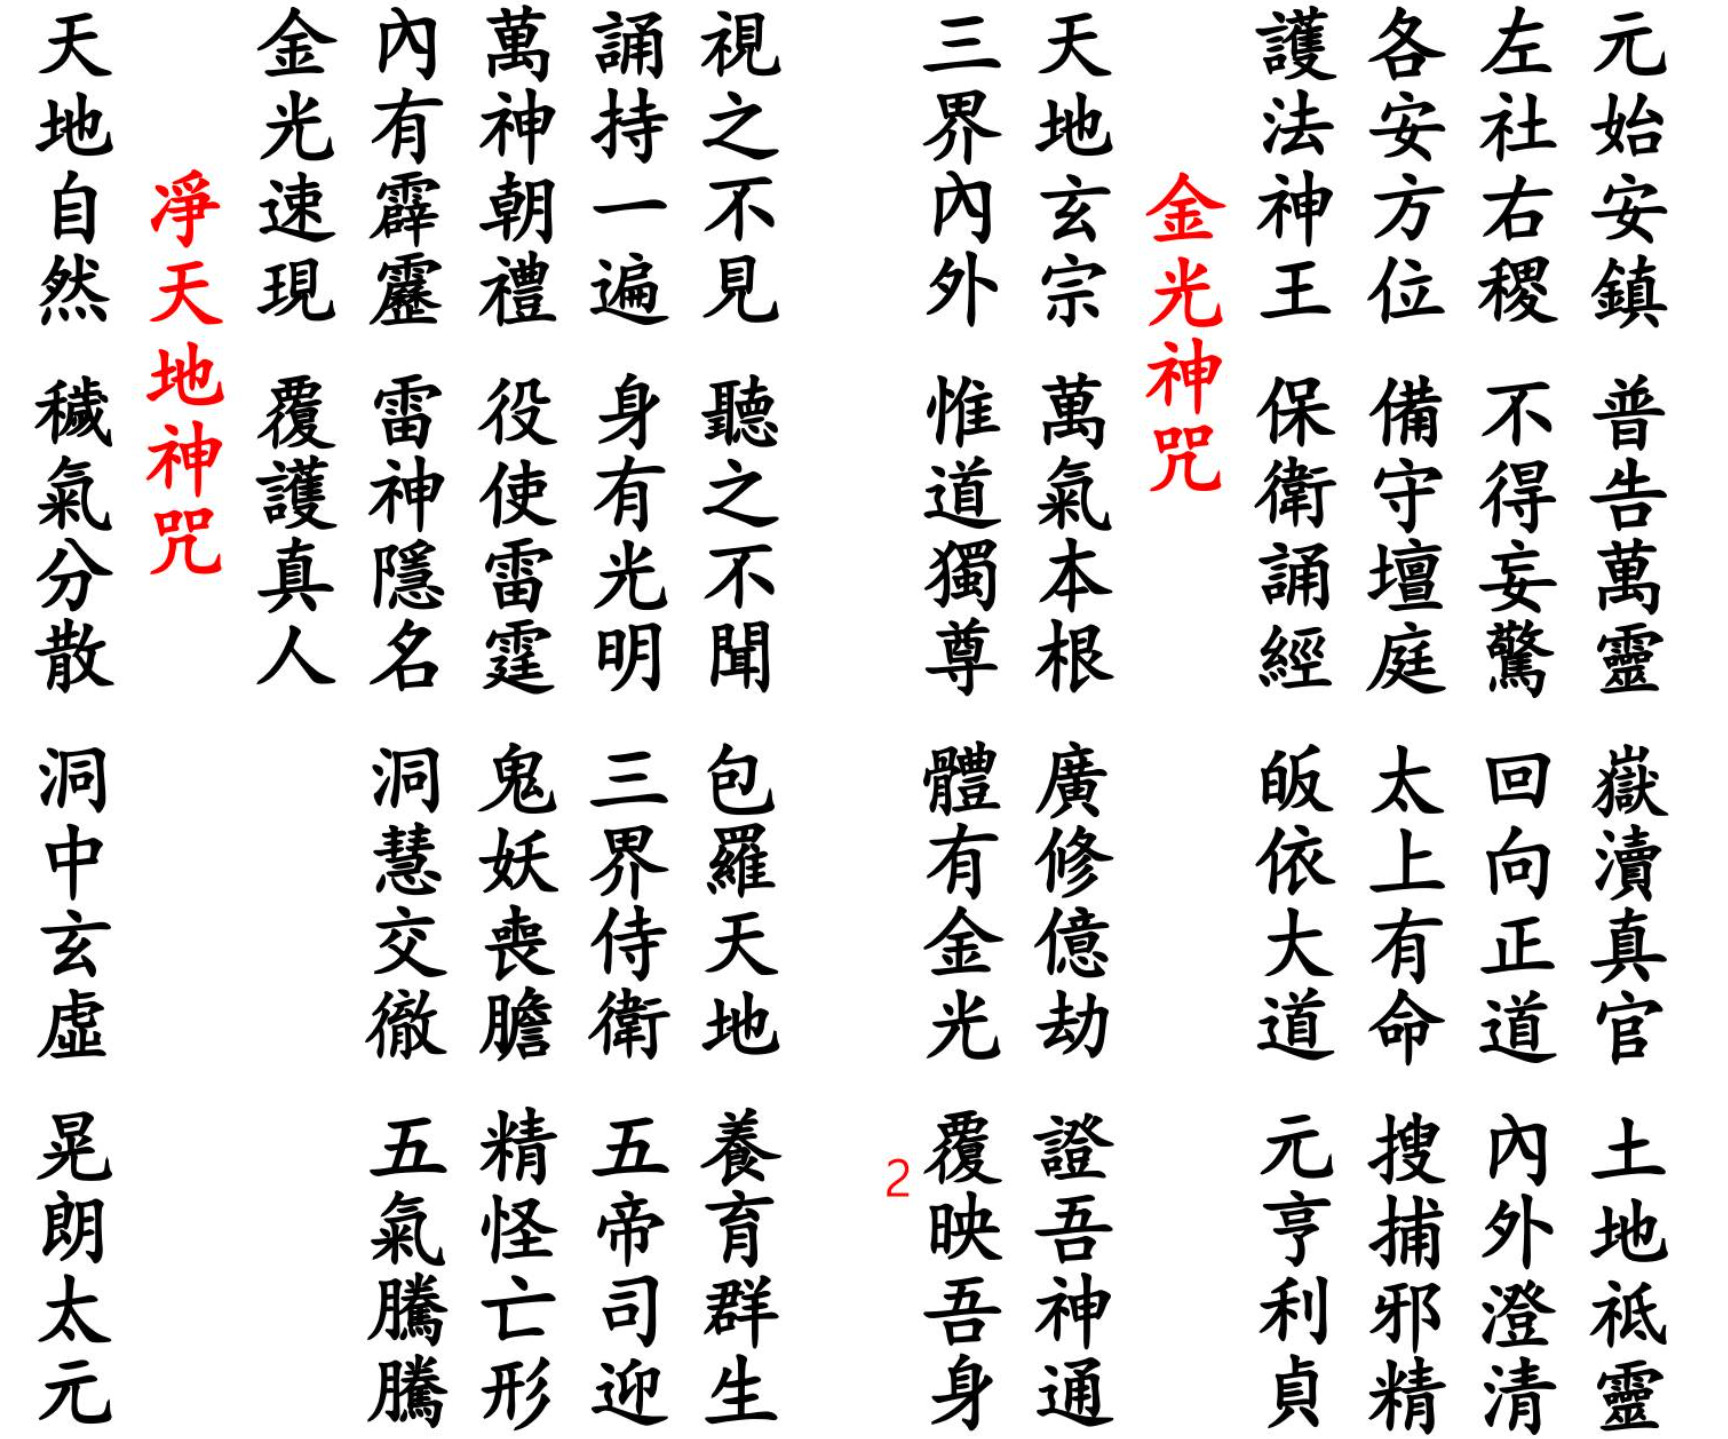 元始安鎮 普告萬靈 嶽瀆真官 土地祇靈
左社右稷 不得妄驚 回向正道 內外澄清
各安方位 備守壇庭 太上有命 搜捕邪精
護法神王 保衛誦經 皈依大道 元亨利貞
金光神咒
天地玄宗 萬氣本根 廣修億劫 證吾神通
三界內外 惟道獨尊 體有金光 覆映吾身
2
視之不見 聽之不聞 包羅天地 養育群生
誦持一遍 身有光明 三界侍衛 五帝司迎
萬神朝禮 役使雷霆 鬼妖喪膽 精怪亡形
內有霹靂 雷神隱名 洞慧交徹 五氣騰騰
金光速現 覆護真人
淨天地神咒
天地自然 穢氣分散 洞中玄虛 晃朗太元